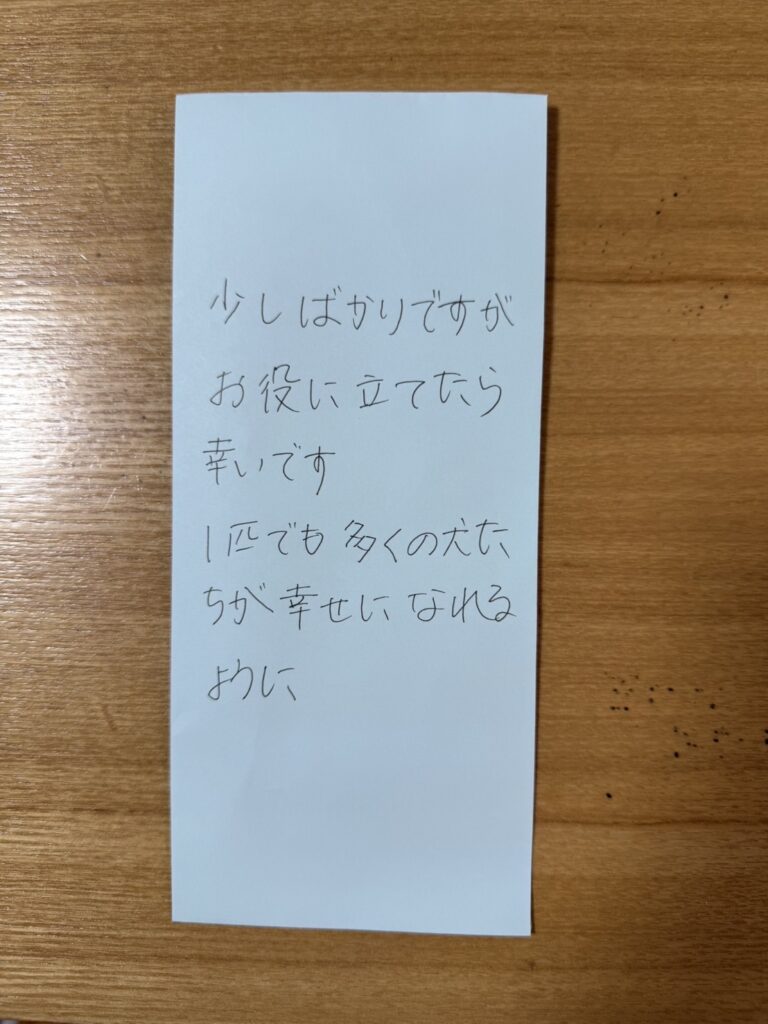 少しばかりですが
お役に立てたら
幸いです
1匹でも多くの犬た
ちが幸せになれる
ように